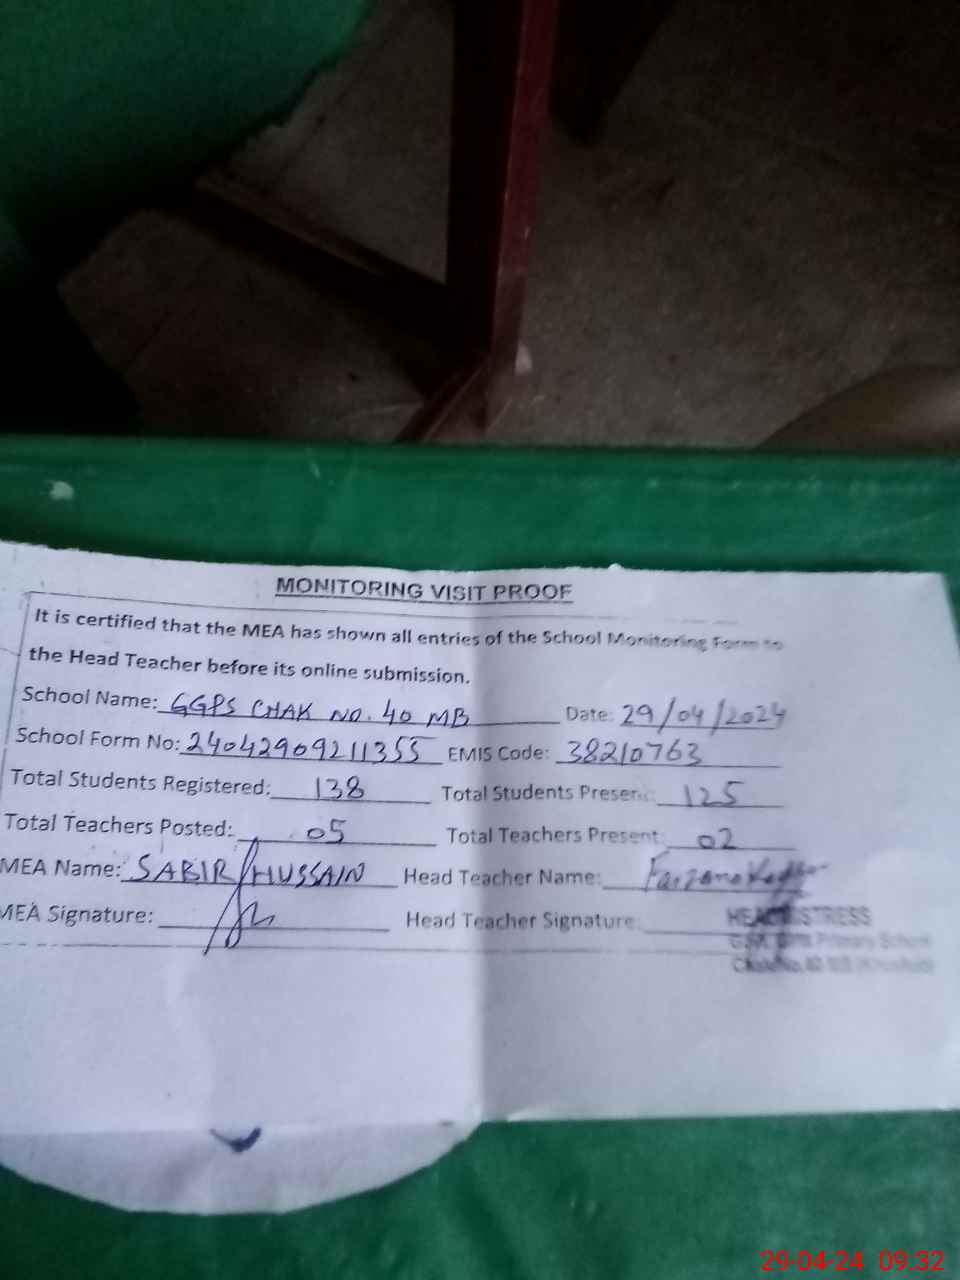 MONITORING VISIT PROOF
It is certified that the MEA has shown all entries of the School Monitoring Form to
the Head Teacher before its online submission.
School Name: GGPS CHAK NO. 40 MB Date: 29/04/2024
School Form No: 24042909211355 EMIS Code: 38210763
Total Students Registered: 138 Total Students Present: 125
Total Teachers Posted: 05 Total Teachers Present: 02
MEA Name: SABIR HUSSAIN Head Teacher Name: Farzana
MEA Signature: Head Teacher Signature:
HEADMISTRESS
Girls Primary School
Chak No. 40 MB (Khushab)
29-04-24 09:32